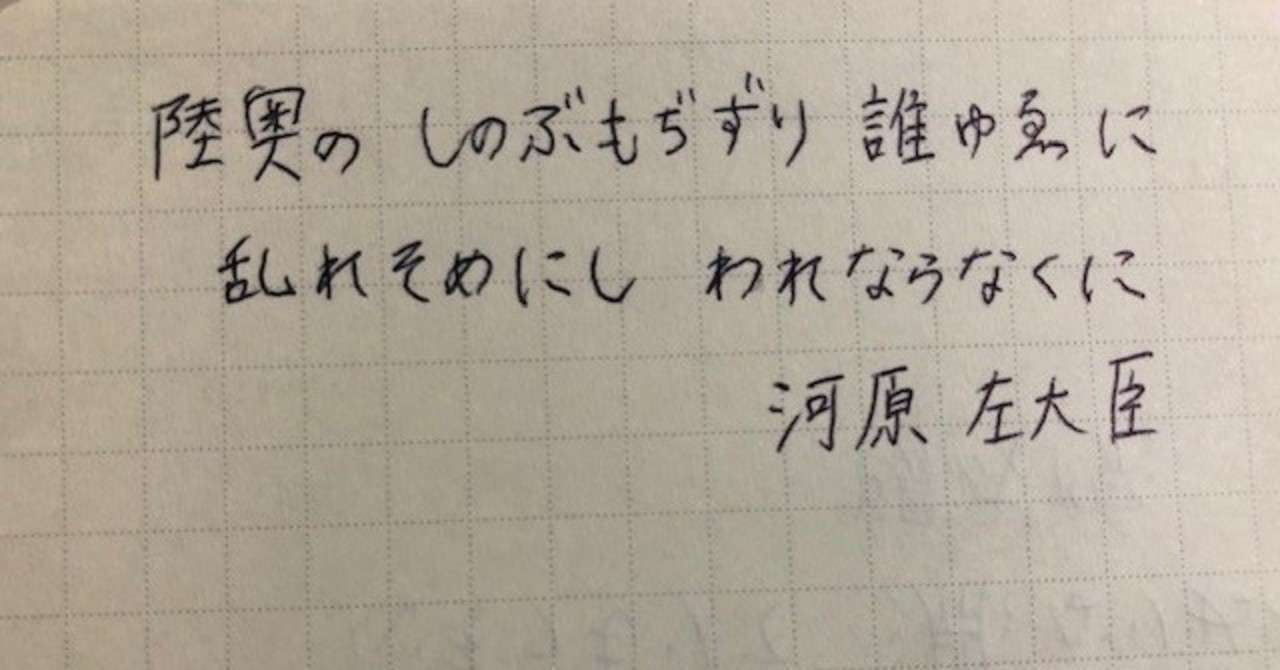 陸奥の しのぶもぢずり 誰ゆゑに
乱れそめにし われならなくに
河原 左大臣